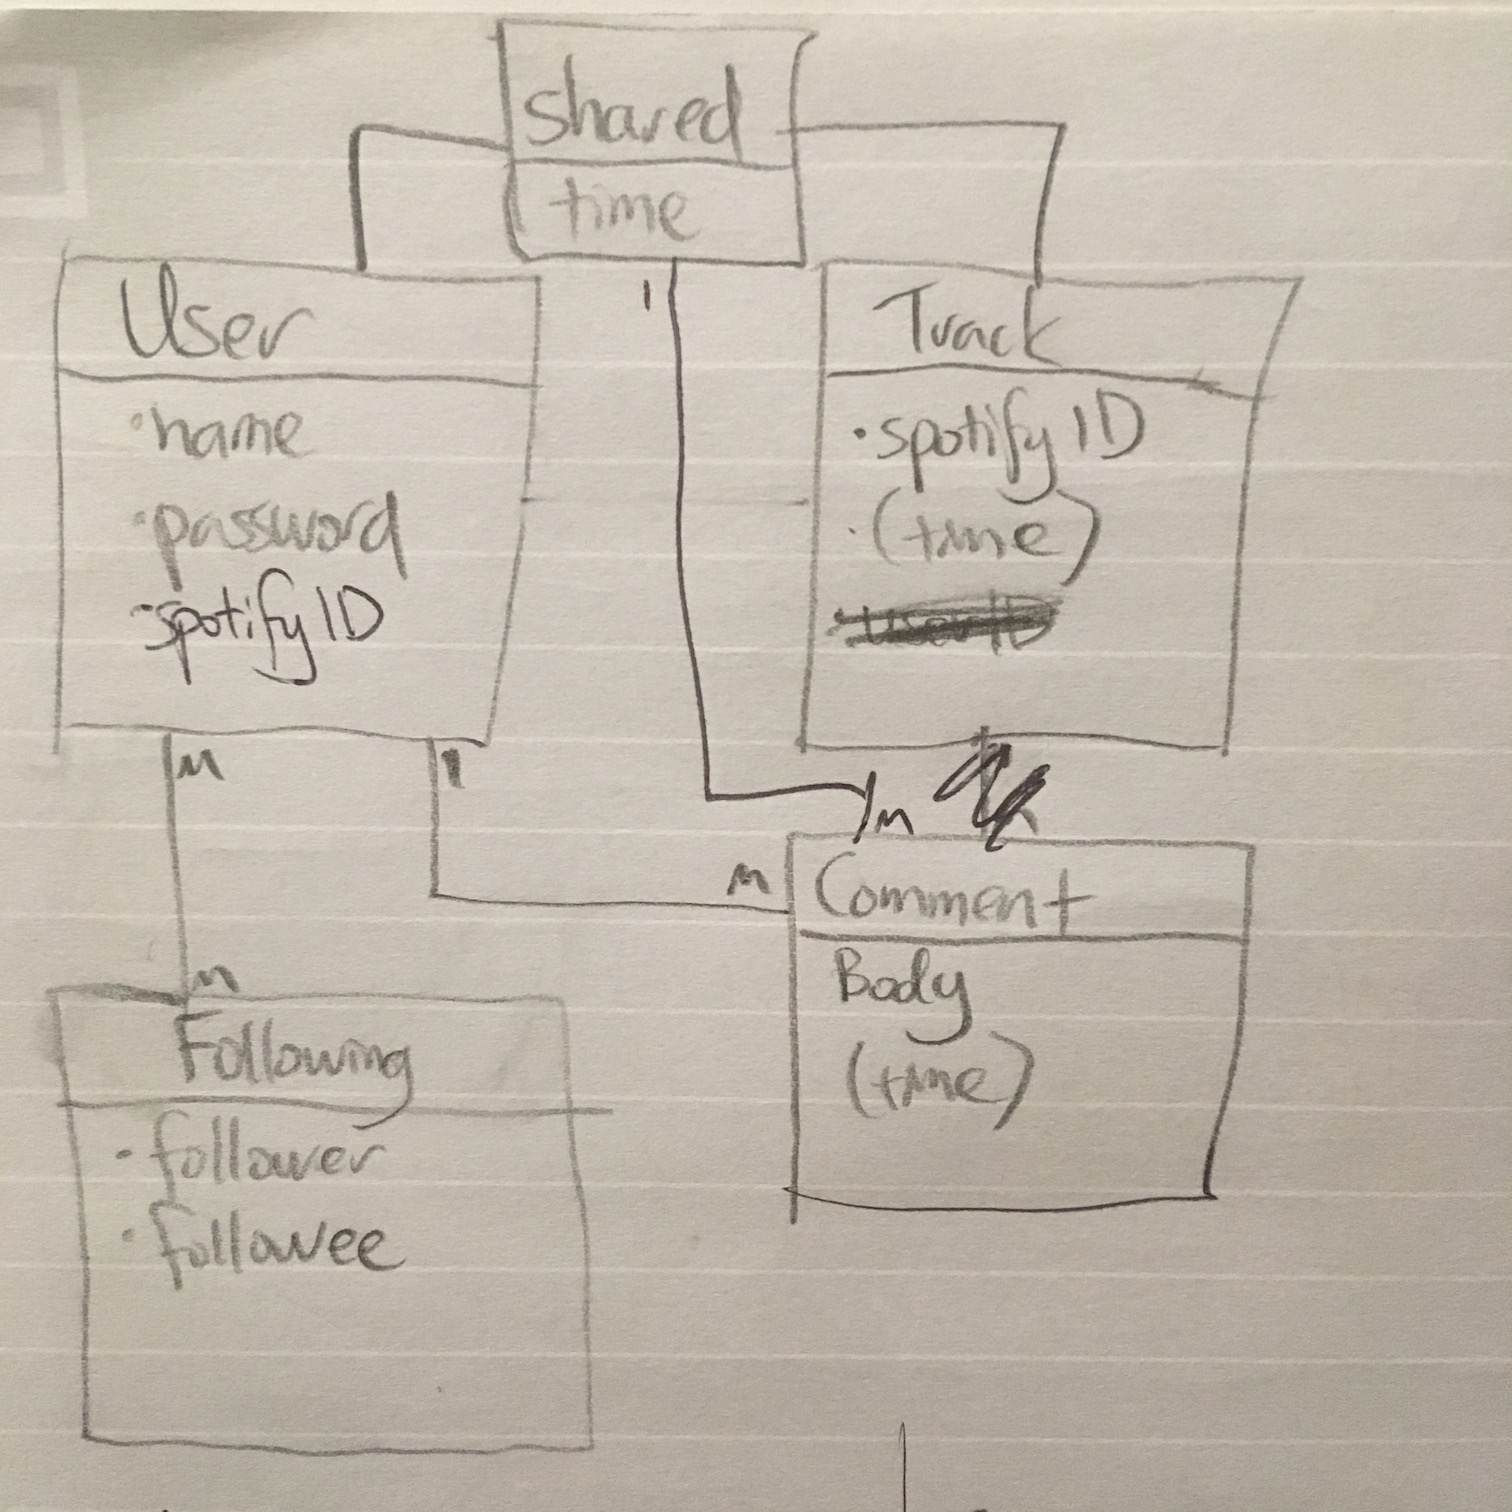 shared
time
User
• name
• password
• spotify ID
Track
• spotify ID
• (time)
• UserID
1
M
1
M
M
M
Comment
Body
(time)
Following
• follower
• followee